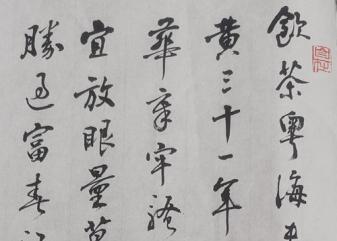 飲茶粵海未
黄三十一年
華章牢
宜放眼量莫
勝過富春江